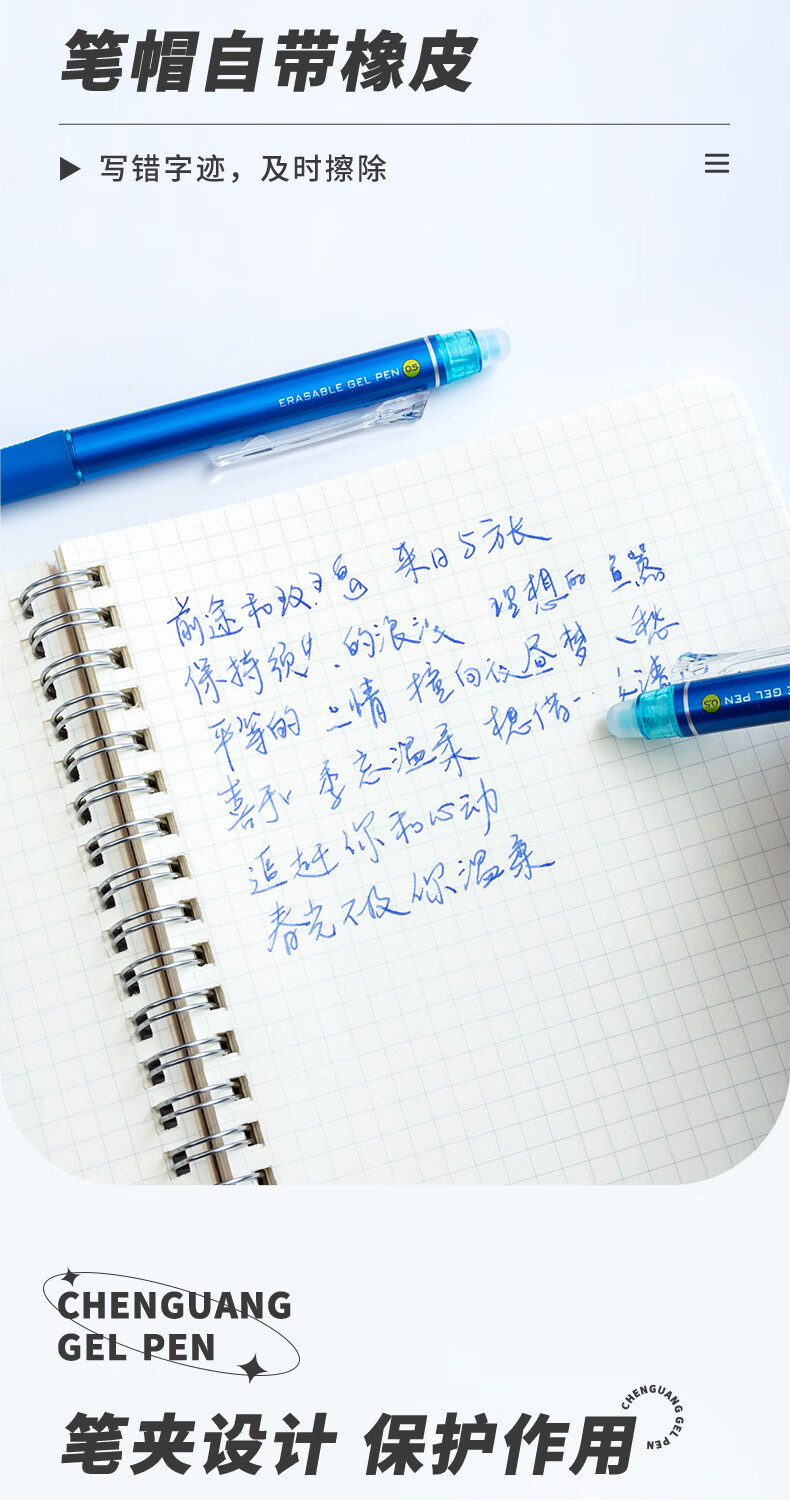 笔帽自带橡皮
写错字迹，及时擦除
ERASABLE GEL PEN 0.5
前途和玫 来日 方长
保持 的浪漫 理想的
平等的 情 撞向 昼梦 愁
喜 忘温柔 借
GEL PEN 0.5
追赶你和心动
春光不及你温柔
CHENGUANG
GEL PEN
笔夹设计 保护作用
CHENGUANG GEL PEN